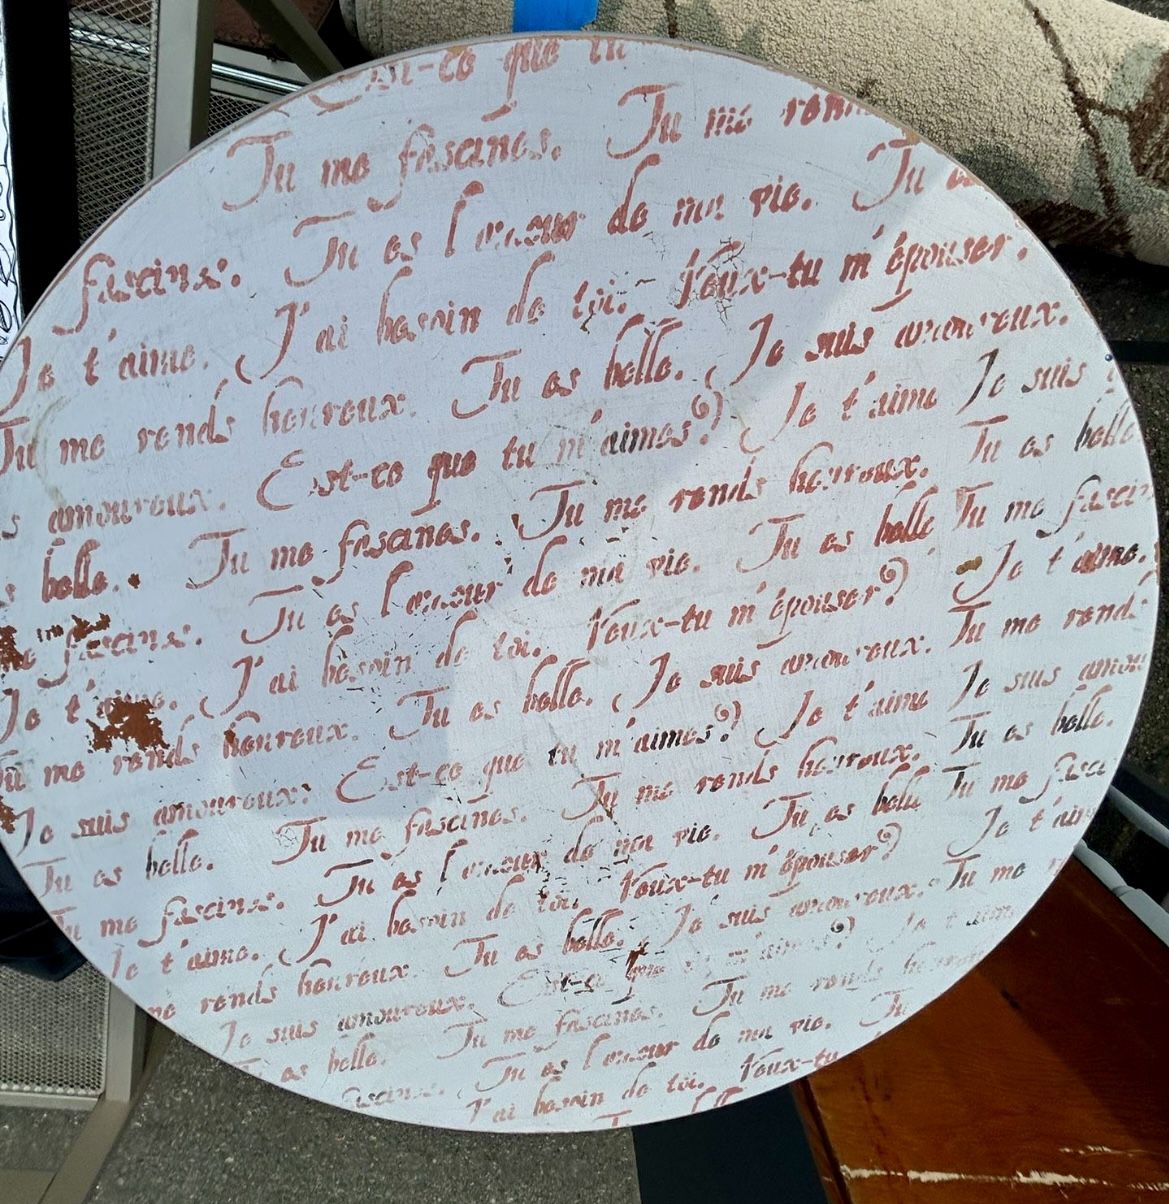 Est-ce que tu
Tu me fascines. Tu me rends
fascines. Tu es l'amour de ma vie. Tu es
Je t'aime. J'ai besoin de toi. Veux-tu m'épouser.
Tu me rends heureux. Tu es belle. Je suis amoureux.
s amoureux. Est-ce que tu m'aimes? Je t'aime Je suis
s belle. Tu me fascines. Tu me rends heureux. Tu es belle
me fascines. Tu es l'amour de ma vie. Tu es belle Tu me fascin
Je t'aime. J'ai besoin de toi. Veux-tu m'épouser? Je t'aime.
Tu me rends heureux. Tu es belle. Je suis amoureux. Tu me rends
Je suis amoureux. Est-ce que tu m'aimes? Je t'aime Je suis amou
Tu es belle. Tu me fascines. Tu me rends heureux. Tu es belle.
Tu me fascines. Tu es l'amour de ma vie. Tu es belle Tu me fasci
Je t'aime. J'ai besoin de toi. Veux-tu m'épouser? Je t'aim
me rends heureux. Tu es belle. Je suis amoureux. Tu me
Je suis amoureux. Est-ce que tu m'aimes? Je t'aim
Tu es belle. Tu me fascines. Tu me rends heureux
fascines. Tu es l'amour de ma vie. Tu
J'ai besoin de toi. Veux-tu